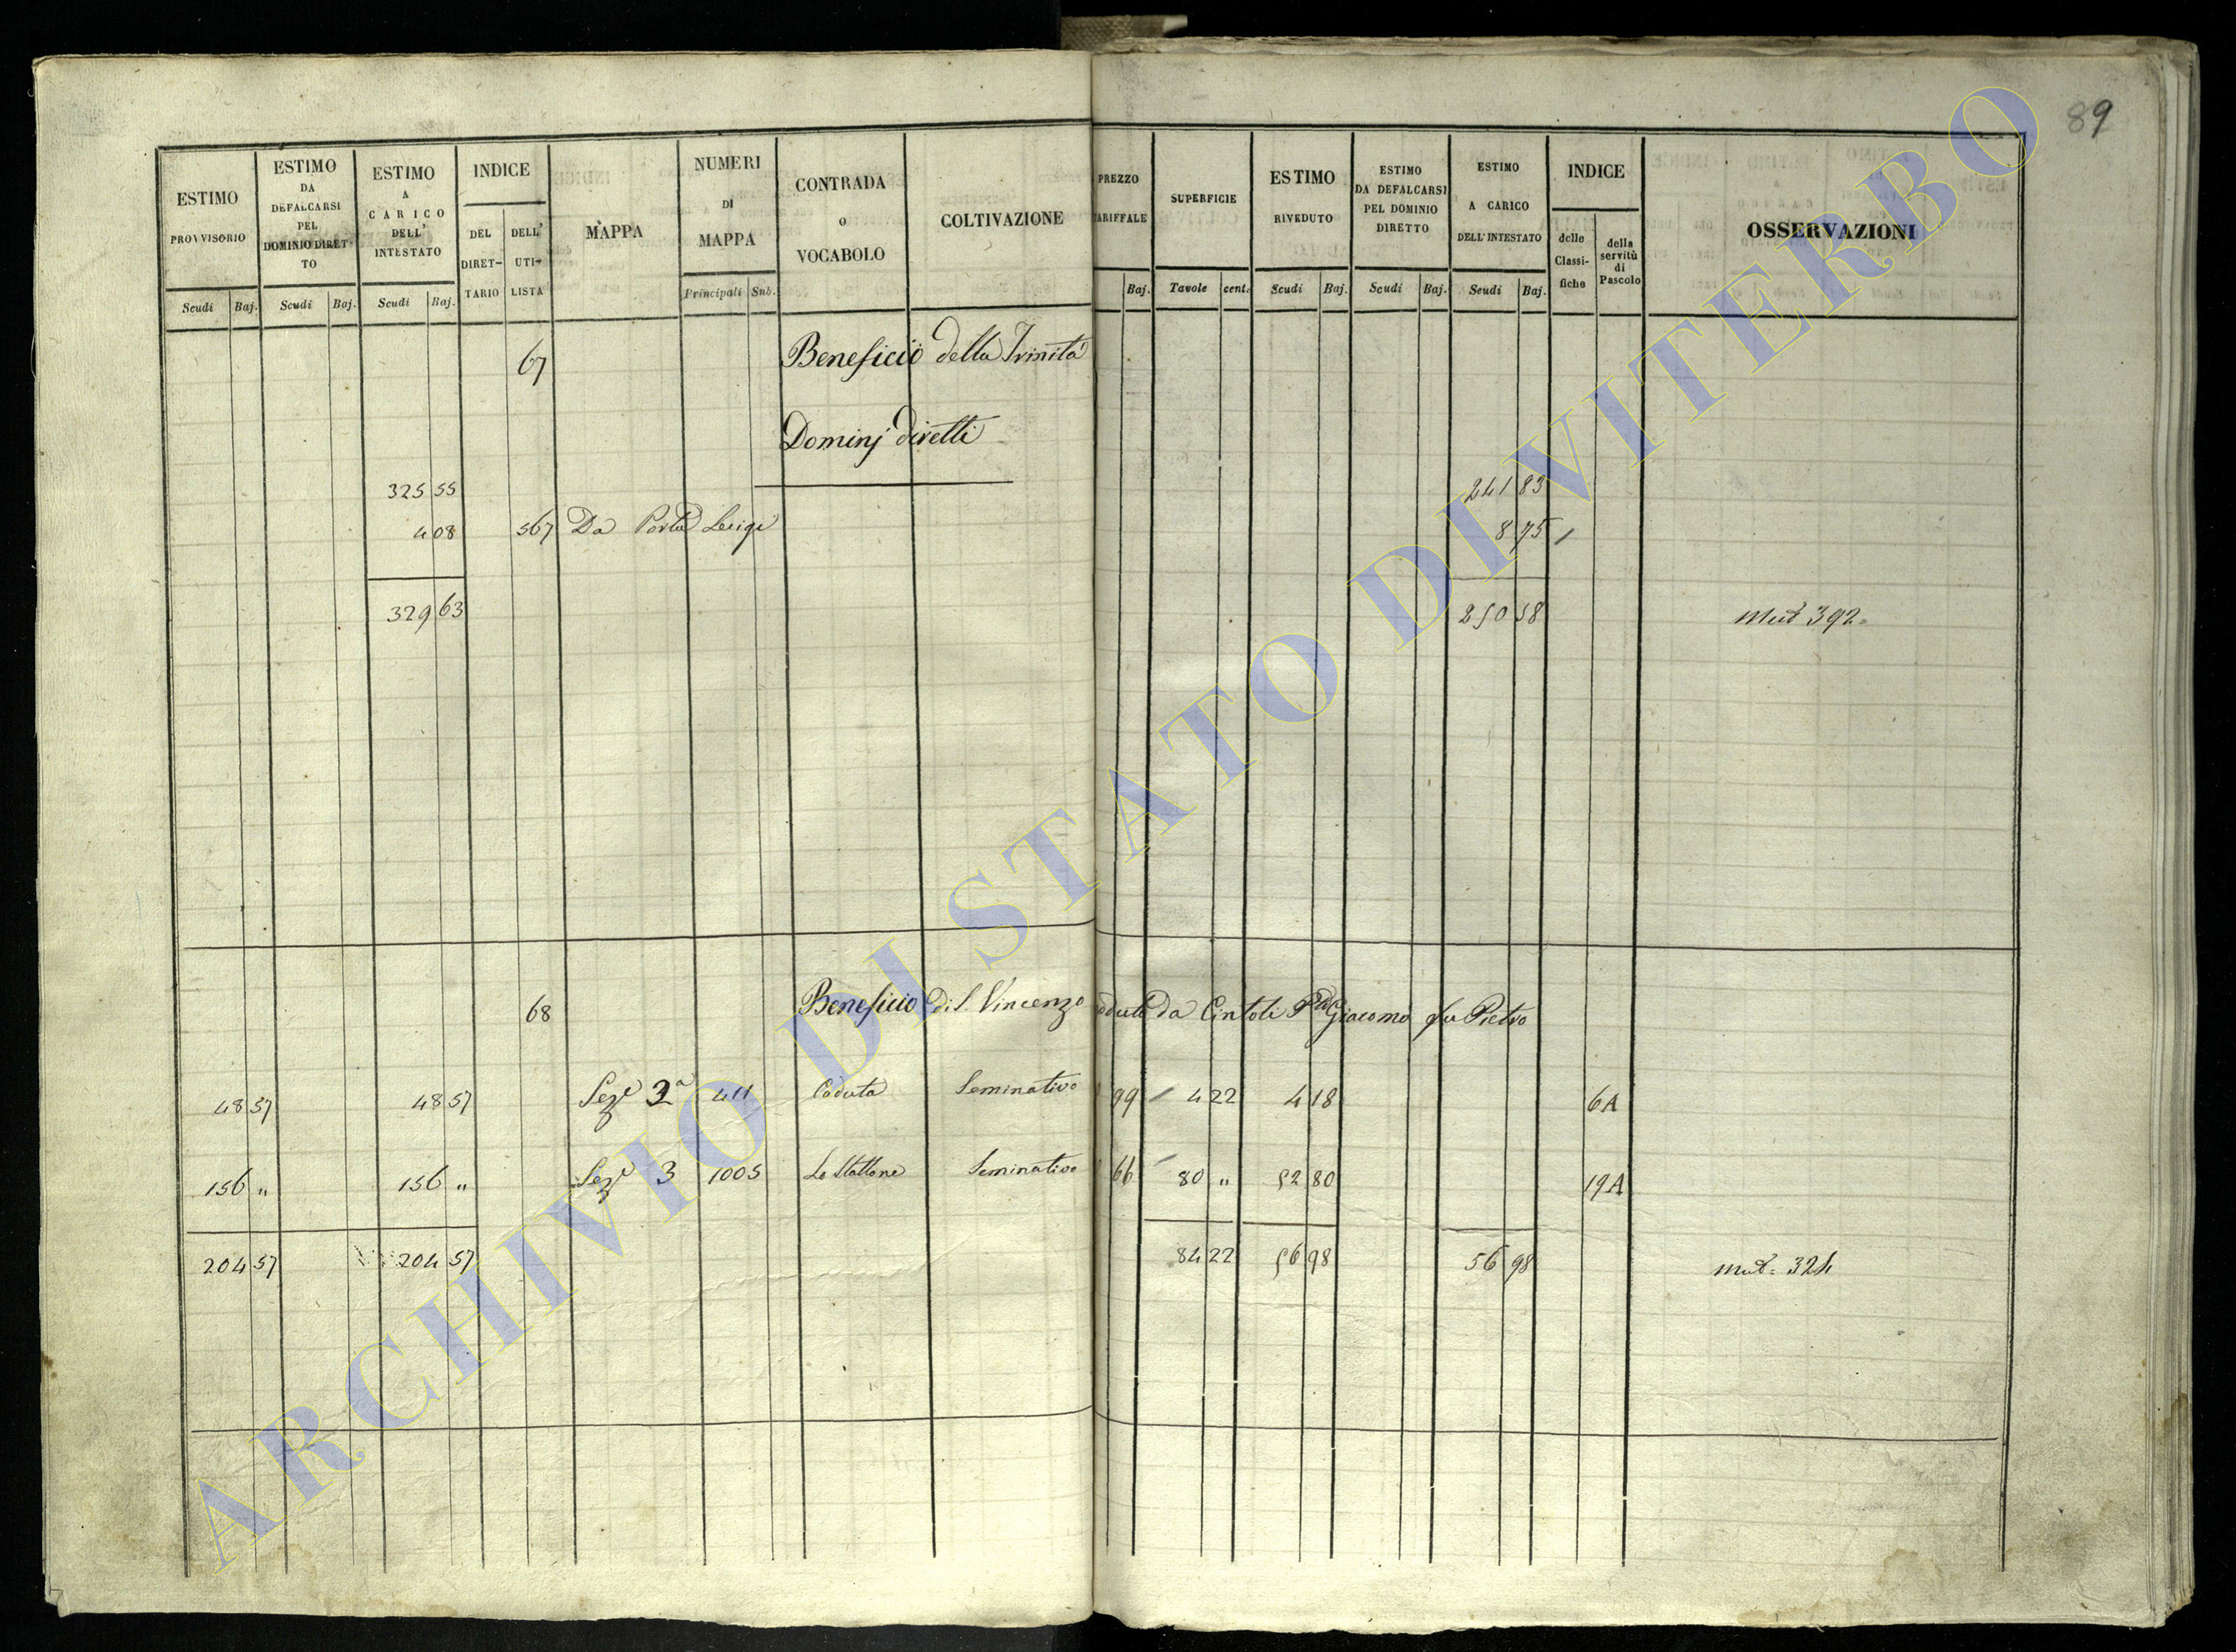 89
ESTIMO PROVVISORIO | ESTIMO DA DEFALCARSI PEL DOMINIO DIRET-TO | ESTIMO A CARICO DELL' INTESTATO | INDICE DEL DIRET-TARIO | DELL' UTI-LISTA | MAPPA | NUMERI DI MAPPA | CONTRADA o VOCABOLO | COLTIVAZIONE | PREZZO TARIFFALE | SUPERFICIE | ESTIMO RIVEDUTO | ESTIMO DA DEFALCARSI PEL DOMINIO DIRETTO | ESTIMO A CARICO DELL' INTESTATO | INDICE delle Classi-fiche | della servitù di Pascolo | OSSERVAZIONI
Scudi Baj. | Scudi Baj. | Scudi Baj. | Principali Sub. | Baj. | Tavole cent. | Scudi Baj. | Scudi Baj. | Scudi Baj.
67 Beneficio della Trinità
Dominj diretti
325 55 | 241 83
4 08 | 567 Da Porta Luigi | 8 75 /
329 63 | 250 58 | Mut 392 =
68 Beneficio di S. Vincenzo goduto da Cintoli Giacomo fu Pietro
48 57 | 48 57 | Seze 2a | 411 | Caduta | Seminativo | 99 | 4 22 | 4 18 | 6A
156 " | 156 " | Seze 3 | 1005 | Lo Stallone | Seminativo | 66 | 80 " | 52 80 | 19A
204 57 | 204 57 | 84 22 | 56 98 | 56 98 | mut = 324
ARCHIVIO DI STATO DI VITERBO